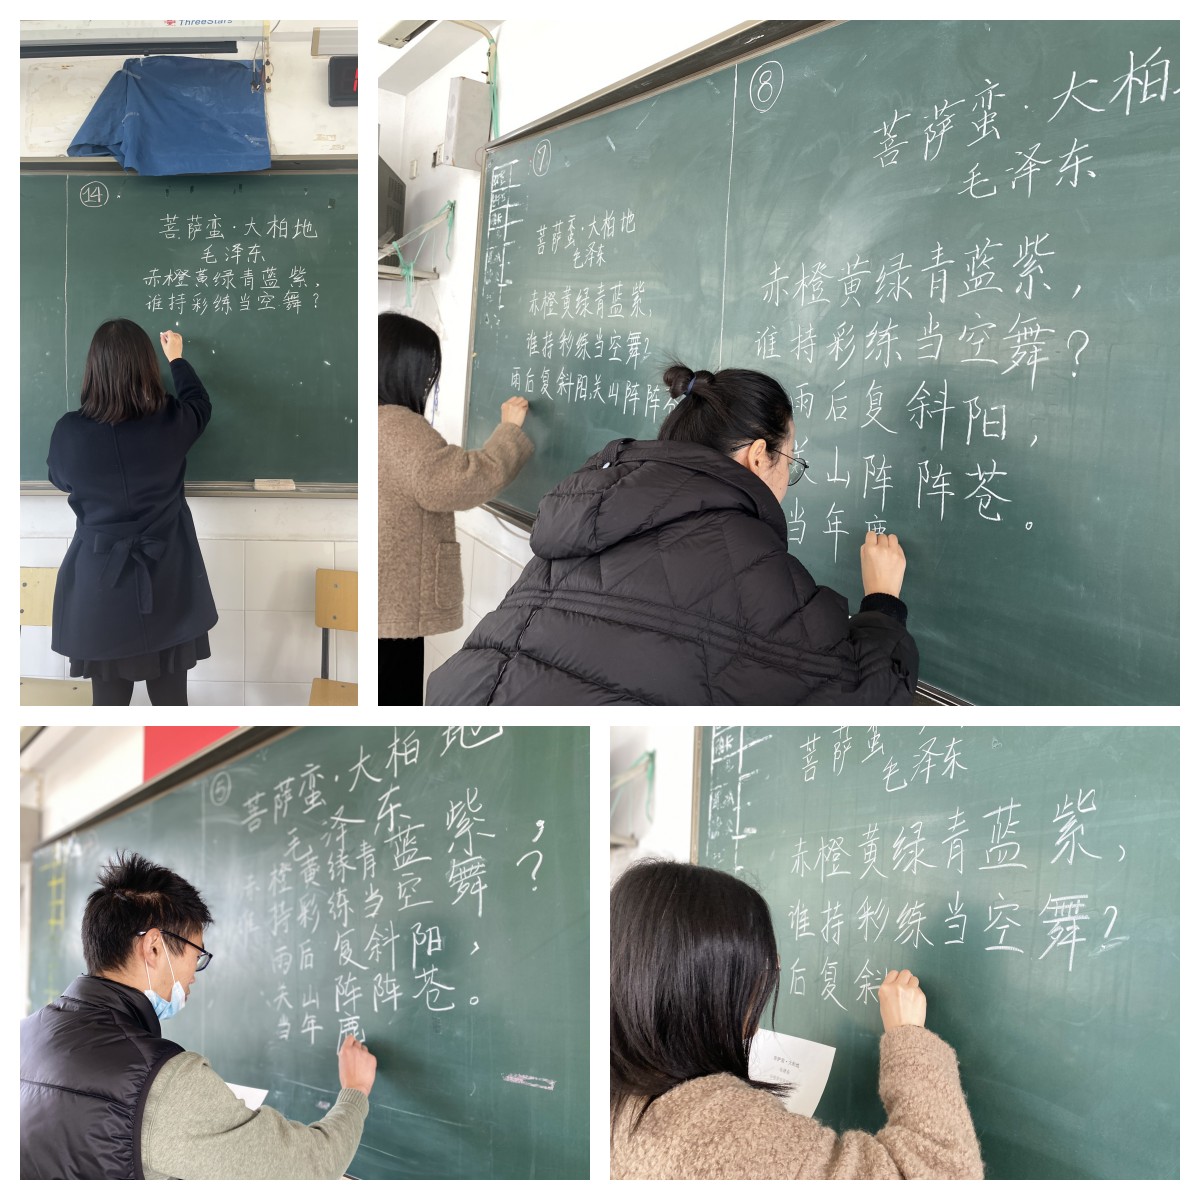 ThreeStars
14
菩萨蛮·大柏地
毛泽东
赤橙黄绿青蓝紫，
谁持彩练当空舞？
7
菩萨蛮·大柏地
毛泽东
赤橙黄绿青蓝紫，
谁持彩练当空舞？
雨后复斜阳，关山阵阵苍
8
菩萨蛮·大柏
毛泽东
赤橙黄绿青蓝紫，
谁持彩练当空舞？
雨后复斜阳，
关山阵阵苍。
当年鏖
5
菩萨蛮·大柏地
毛泽东
赤橙黄绿青蓝紫，
谁持彩练当空舞？
雨后复斜阳，
关山阵阵苍。
当年鏖
菩萨蛮
毛泽东
赤橙黄绿青蓝紫，
谁持彩练当空舞？
后复斜